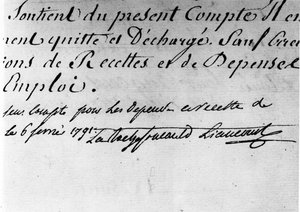 Soutient du present Compte Il en
ment quitte et Déchargé. Sauf Erre
ions de Recettes et de Depenses
Emploi.
Compte pour les depenses et recette de
le 6 fevrie 1791
La Rochefoucauld Liancourt